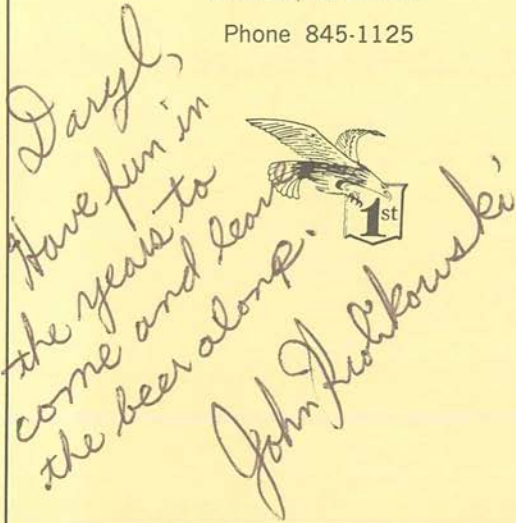 Phone 845-1125
1st
Daryl,
Have fun in
the years to
come and leave
the beer alone.
John